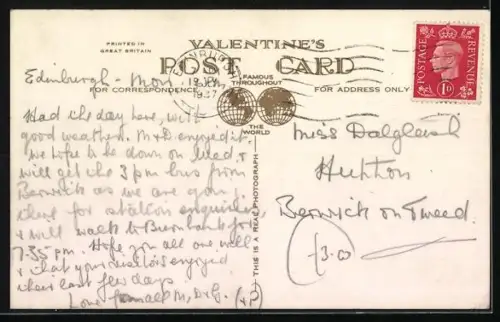 PRINTED IN
GREAT BRITAIN
VALENTINE'S
POST CARD
FOR CORRESPONDENCE
FAMOUS
THROUGHOUT
THE
WORLD
FOR ADDRESS ONLY
EDINBURGH
1937
POSTAGE
REVENUE
1D
THIS IS A REAL PHOTOGRAPH
Edinburgh - Mon.
Had the day here, with
good weather. M & D enjoyed it.
We hope to be down on Wed. &
will get the 3 pm bus from
Berwick as we are going
there for station enquiries
& will walk to Burnbank for
7.35 pm. Hope you all are well
& that your visitors enjoyed
their last few days.
Love from all M, D & G.
Miss Dalgleish
Hutton
Berwick on Tweed.